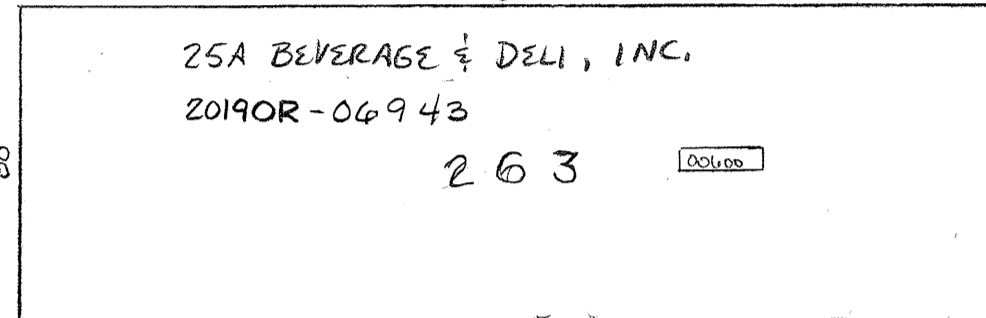 25A BEVERAGE & DELI, INC.
2019OR-06943
263
00600